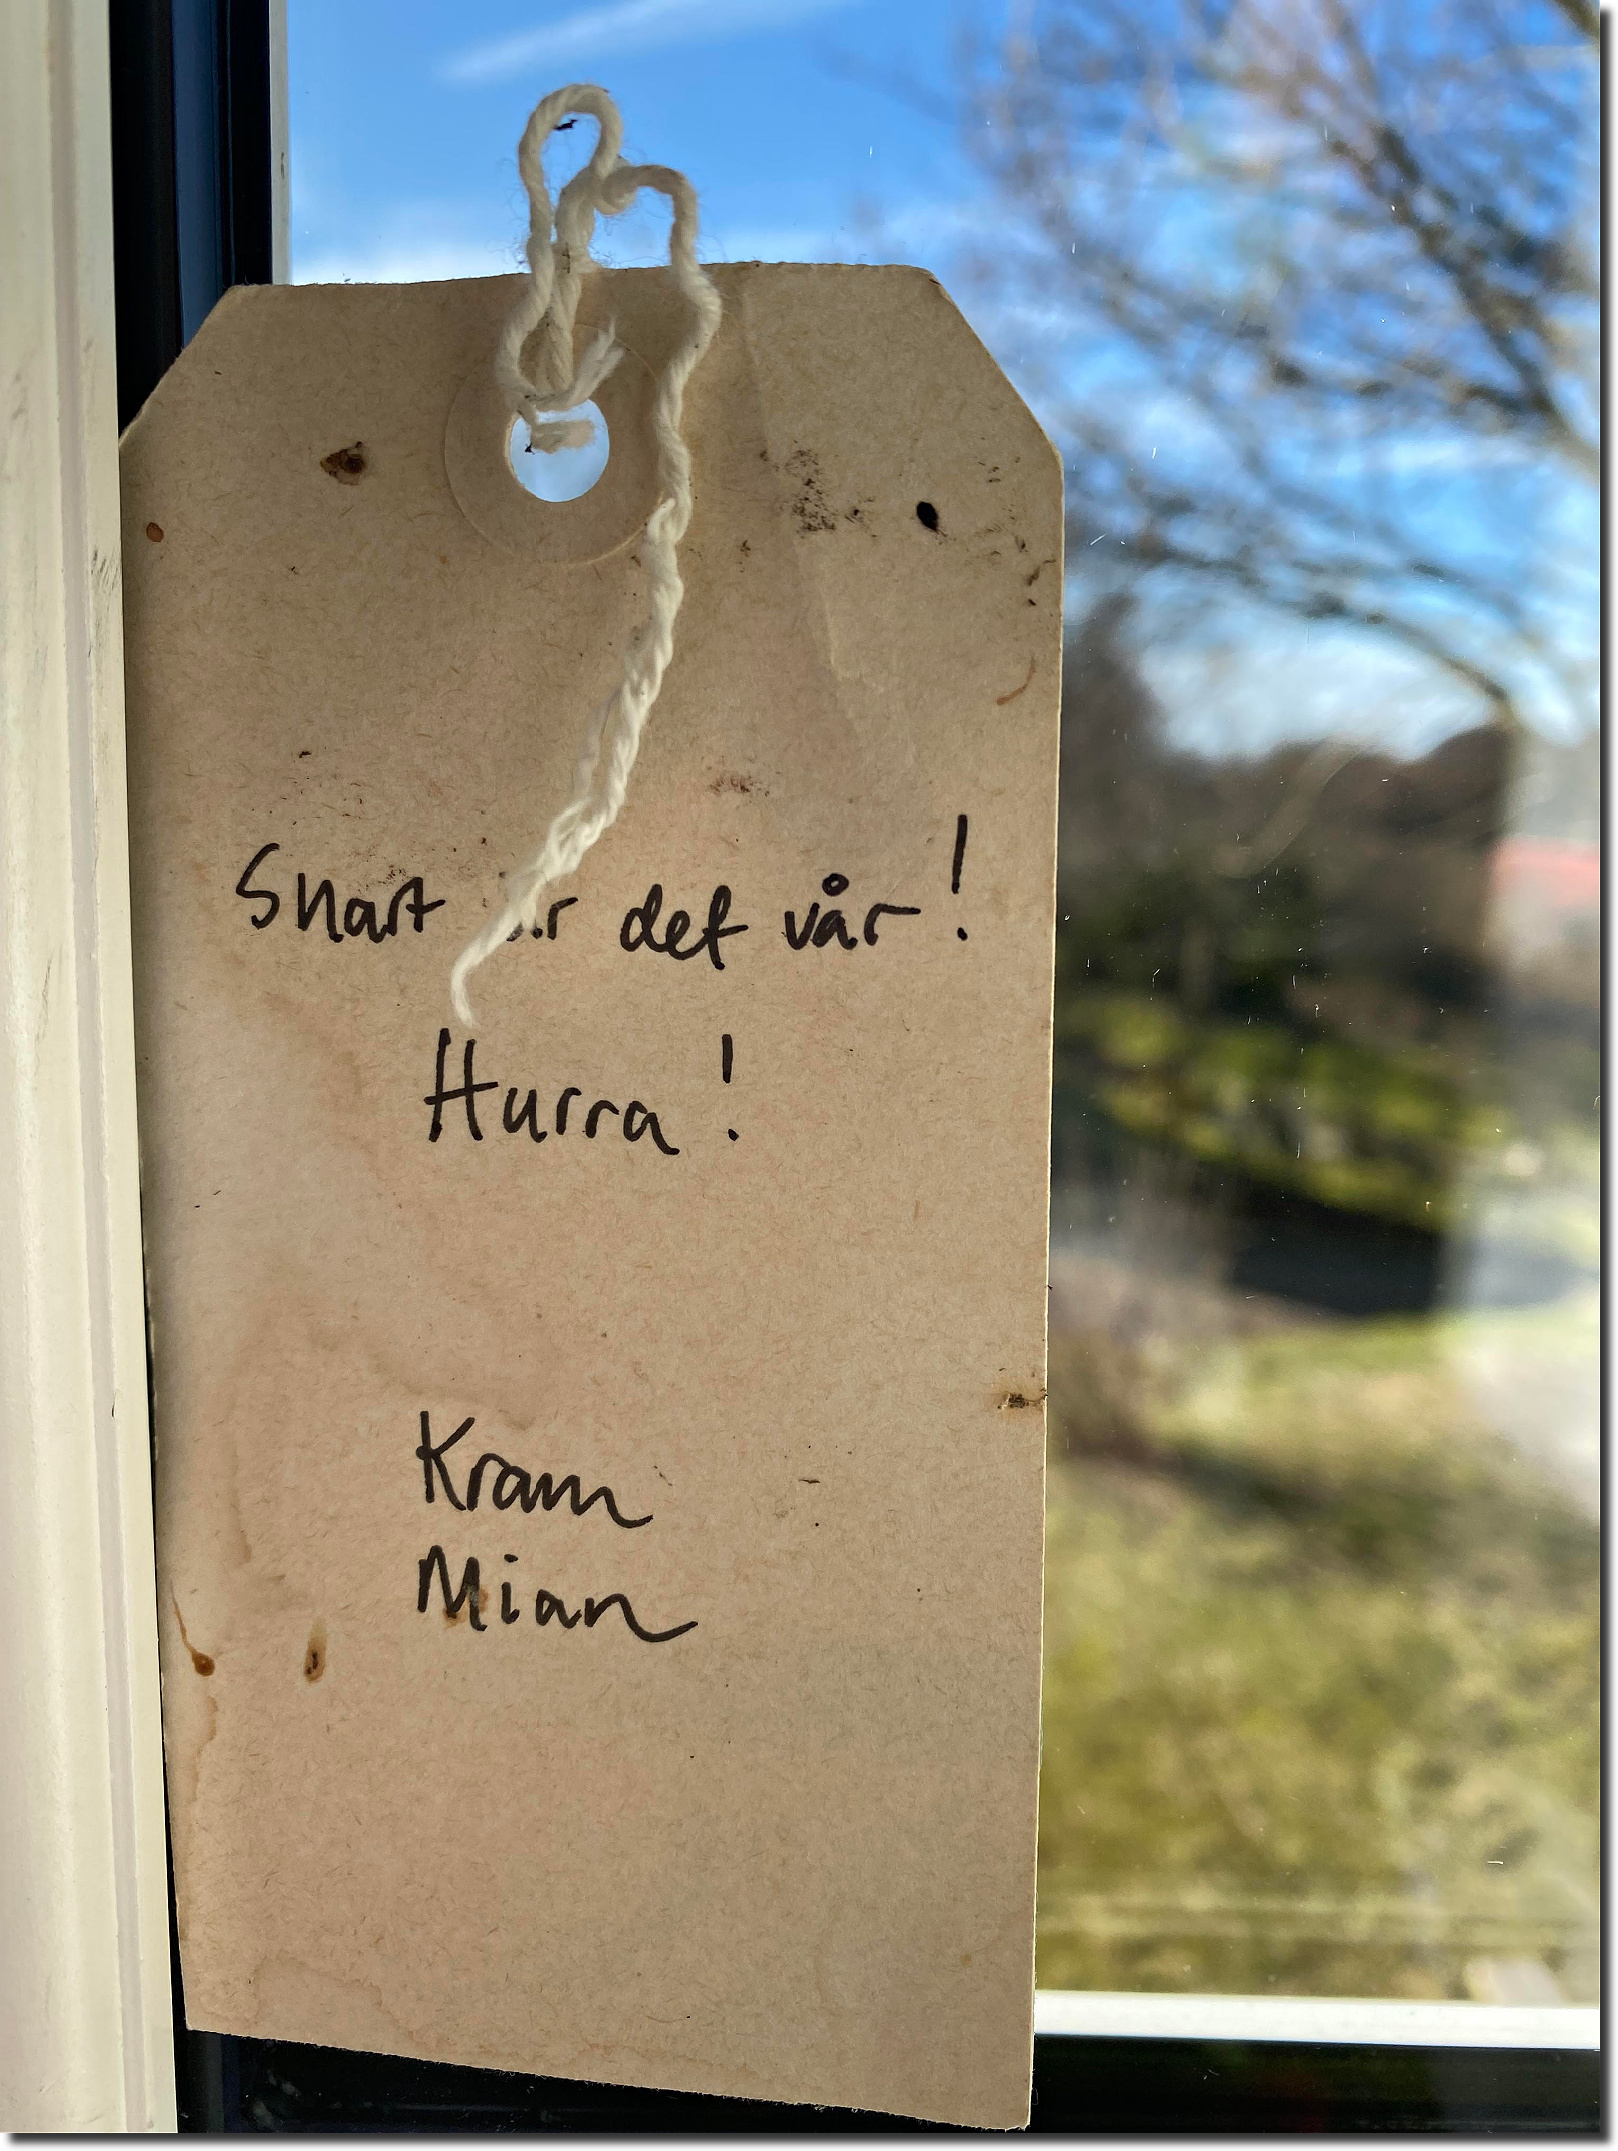 Snart är det vår!
Hurra!
Kram
Mian